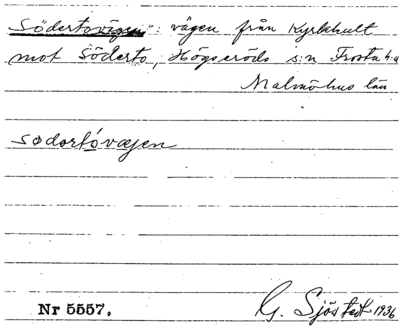 Södertovägen: vägen från Kyrkhult
mot Söderto, Högseröds s:n Frosta h:d
Malmöhus län
södortóvæjen
Nr 5557.
G. Sjöstedt 1936